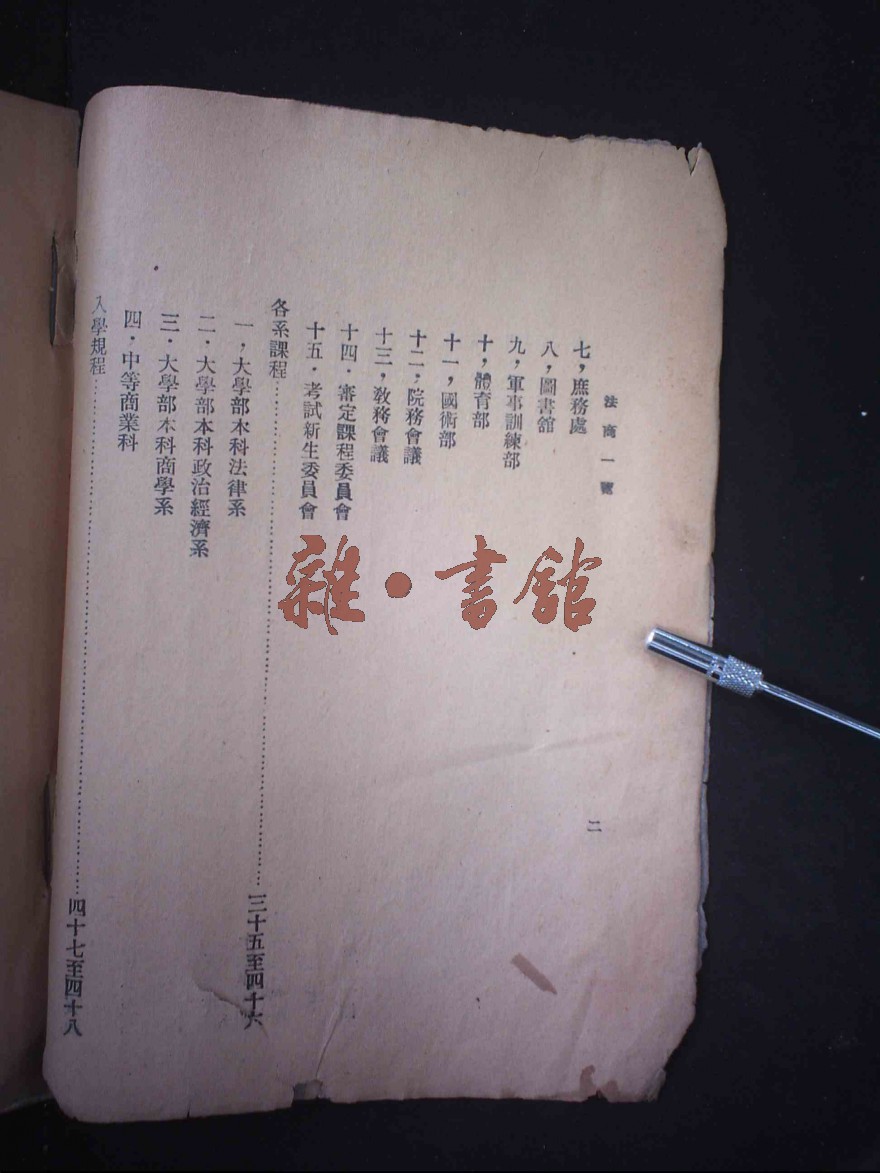 法商一覽
二
七，庶務處
八，圖書舘
九，軍事訓練部
十，體育部
十一，國術部
十二，院務會議
十三，敎務會議
十四．審定課程委員會
十五．考試新生委員會
各系課程……三十五至四十六
一，大學部本科法律系
二．大學部本科政治經濟系
三．大學部本科商學系
四．中等商業科
入學規程……四十七至四十八
雜·書館